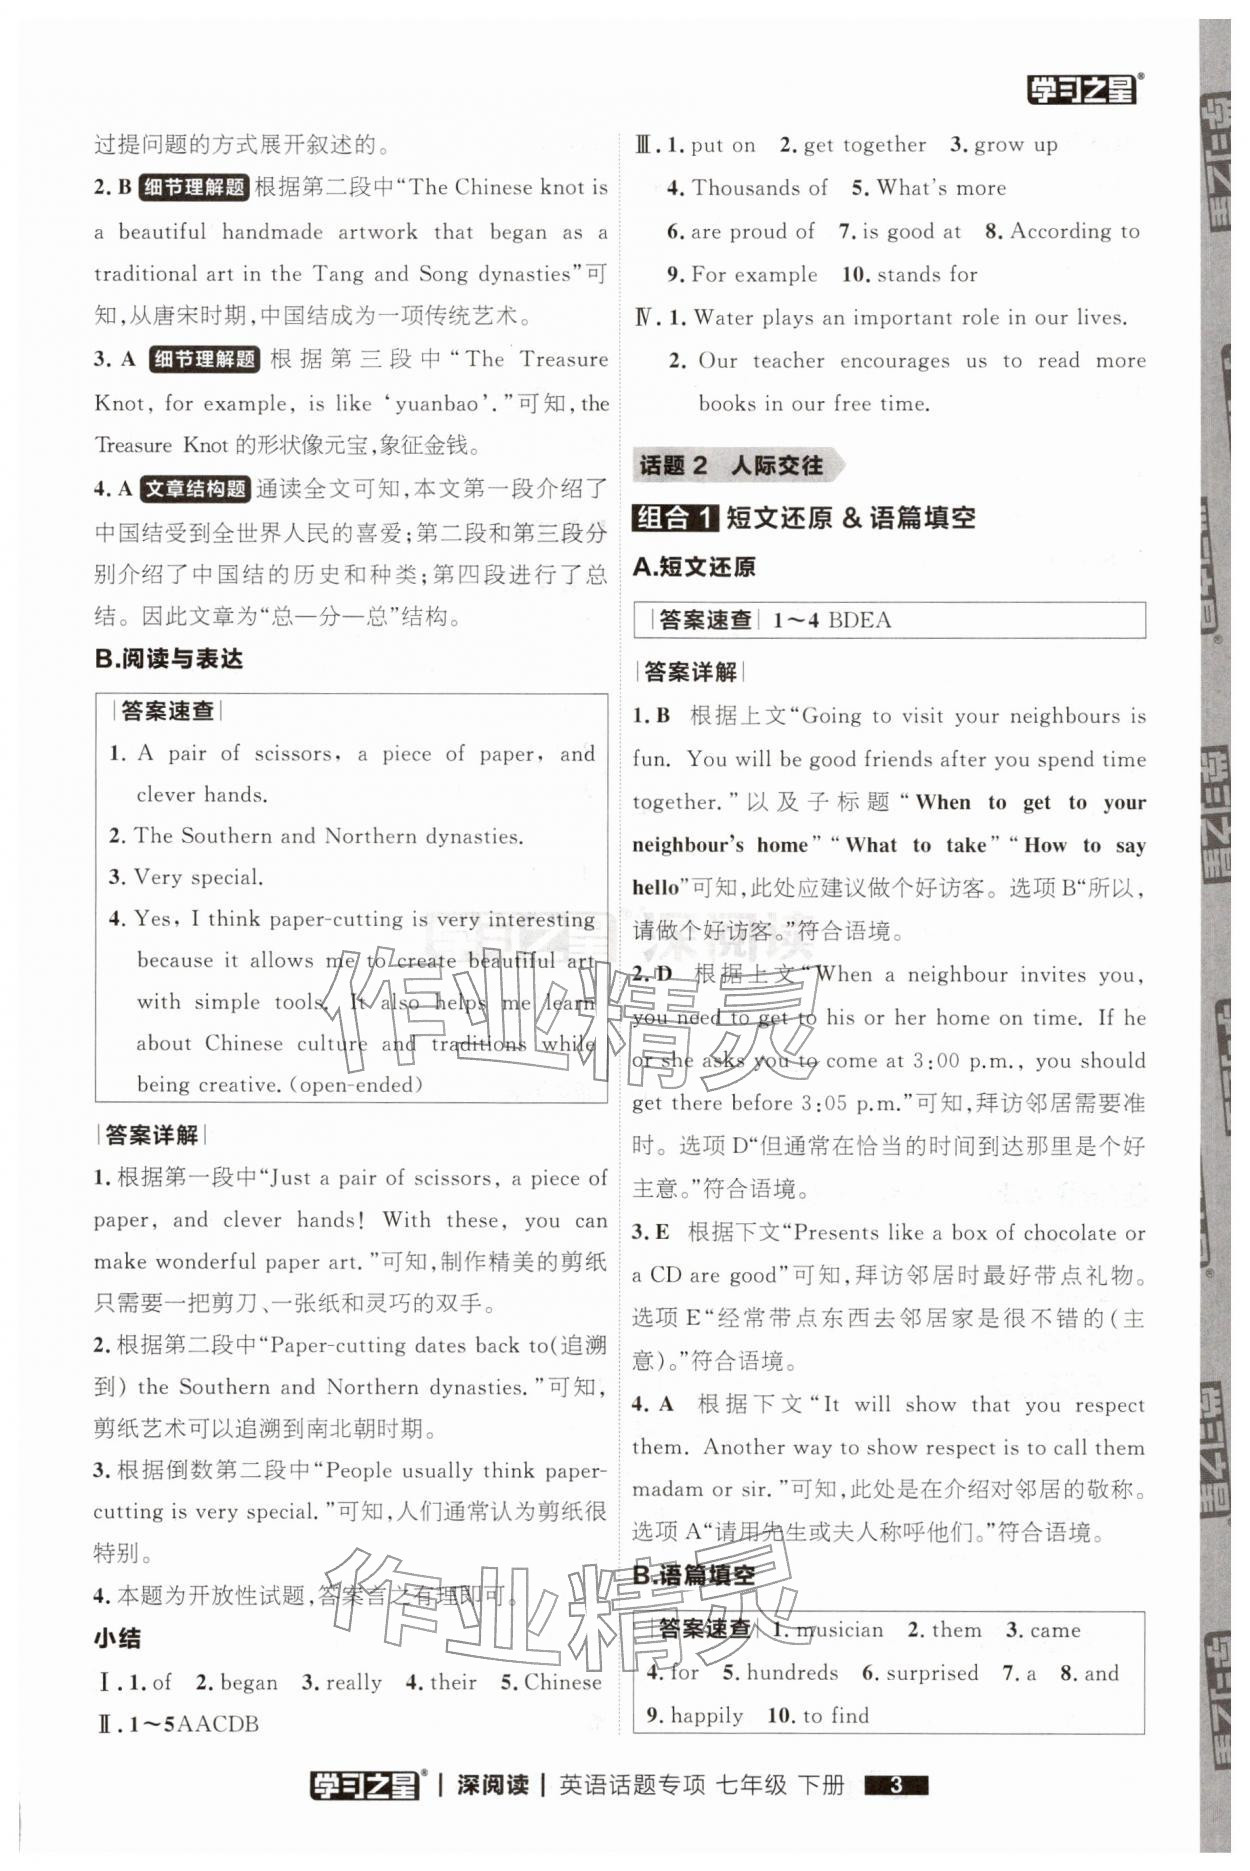 学习之星®
过提问题的方式展开叙述的。
2. B 细节理解题 根据第二段中“The Chinese knot is
a beautiful handmade artwork that began as a
traditional art in the Tang and Song dynasties”可
知,从唐宋时期,中国结成为一项传统艺术。
3. A 细节理解题 根据第三段中“The Treasure
Knot, for example, is like ‘yuanbao’.”可知,the
Treasure Knot 的形状像元宝,象征金钱。
4. A 文章结构题 通读全文可知,本文第一段介绍了
中国结受到全世界人民的喜爱;第二段和第三段分
别介绍了中国结的历史和种类;第四段进行了总
结。因此文章为“总—分—总”结构。
B.阅读与表达
|答案速查|
1. A pair of scissors, a piece of paper, and
clever hands.
2. The Southern and Northern dynasties.
3. Very special.
4. Yes, I think paper-cutting is very interesting
because it allows me to create beautiful art
with simple tools. It also helps me learn
about Chinese culture and traditions while
being creative. (open-ended)
|答案详解|
1. 根据第一段中“Just a pair of scissors, a piece of
paper, and clever hands! With these, you can
make wonderful paper art.”可知,制作精美的剪纸
只需要一把剪刀、一张纸和灵巧的双手。
2. 根据第二段中“Paper-cutting dates back to(追溯
到) the Southern and Northern dynasties.”可知,
剪纸艺术可以追溯到南北朝时期。
3. 根据倒数第二段中“People usually think paper-
cutting is very special.”可知,人们通常认为剪纸很
特别。
4. 本题为开放性试题,答案言之有理即可。
小结
Ⅰ. 1. of 2. began 3. really 4. their 5. Chinese
Ⅱ. 1～5AACDB
Ⅲ. 1. put on 2. get together 3. grow up
4. Thousands of 5. What's more
6. are proud of 7. is good at 8. According to
9. For example 10. stands for
Ⅳ. 1. Water plays an important role in our lives.
2. Our teacher encourages us to read more
books in our free time.
话题 2 人际交往
组合 1 短文还原 & 语篇填空
A.短文还原
|答案速查| 1～4 BDEA
|答案详解|
1. B 根据上文“Going to visit your neighbours is
fun. You will be good friends after you spend time
together.”以及子标题“When to get to your
neighbour's home”“What to take”“How to say
hello”可知,此处应建议做个好访客。选项B“所以,
请做个好访客。”符合语境。
2. D 根据上文“When a neighbour invites you,
you need to get to his or her home on time. If he
or she asks you to come at 3:00 p.m., you should
get there before 3:05 p.m.”可知,拜访邻居需要准
时。选项D“但通常在恰当的时间到达那里是个好
主意。”符合语境。
3. E 根据下文“Presents like a box of chocolate or
a CD are good”可知,拜访邻居时最好带点礼物。
选项E“经常带点东西去邻居家是很不错的(主
意)。”符合语境。
4. A 根据下文“It will show that you respect
them. Another way to show respect is to call them
madam or sir.”可知,此处是在介绍对邻居的敬称。
选项A“请用先生或夫人称呼他们。”符合语境。
B.语篇填空
|答案速查| 1. musician 2. them 3. came
4. for 5. hundreds 6. surprised 7. a 8. and
9. happily 10. to find
学习之星® | 深阅读 | 英语话题专项 七年级 下册 3
学习之星® 深阅读
作业精灵
作业精灵